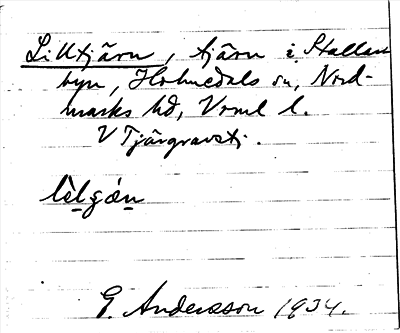 Lilltjärn, tjärn i Stallan
byn, Holmedals sn, Nord-
marks hd, Vrml l.
V Tjärgravstj.
lèlʂǽn
G. Andersson 1934.